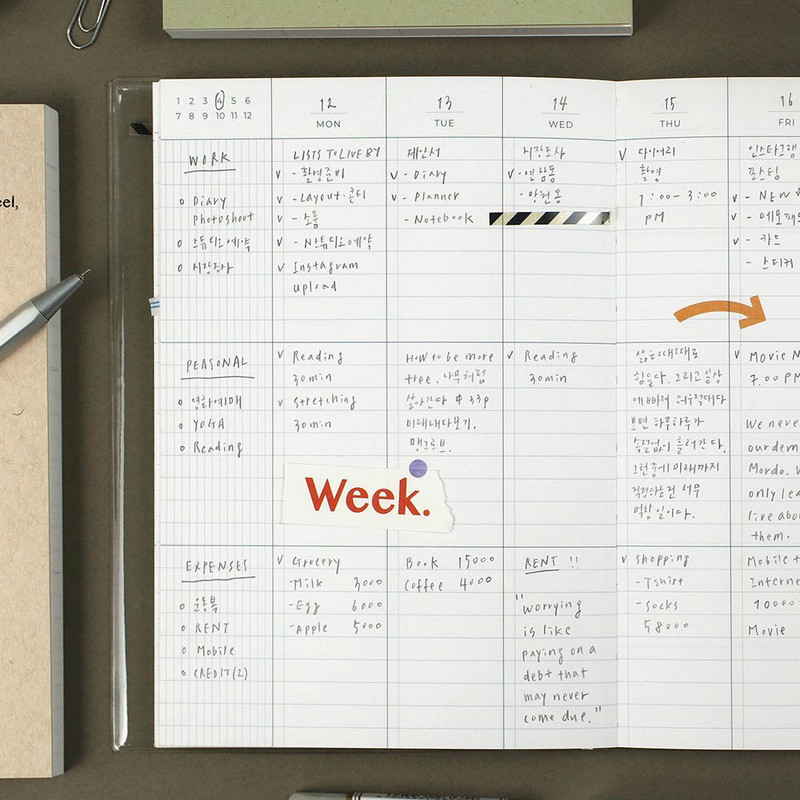 eel,
1 2 3 4 5 6
7 8 9 10 11 12
12
MON
13
TUE
14
WED
15
THU
16
FRI
WORK
o Diary
photoshoot
o 스튜디오예약
o 시장조사
LISTS TO LIVE BY
v - 촬영준비
v - Layout·콘티
v - 소품
v - 스튜디오예약
v Instagram
upload
제안서
v - Diary
v - Planner
- Notebook
시장조사
v - 연남동
- 망원동
v 다이어리
촬영
1:00 - 3:00
PM
인스타그램
포스팅
v - NEW
v -
v - 카드
- 스티커
PERSONAL
o 영화예매
o YOGA
o Reading
v Reading
30min
v stretching
30min
How to be more
tree. 나무처럼
살아간다 중 33p.
미래내다보기.
맹그로브.
v Reading
30min
삶은때때로
힘들다. 그리고일상
에 빠져 허우적대다
보면 하루하루가
속절없이 흘러간다.
그런중에미래까지
걱정하는건 너무
벅찬일이다.
v Movie N
7:00 PM
We never
our dem
Mordo. W
only lea
live abo
them.
Week.
EXPENSES
o 운동복
o RENT
o Mobile
o CREDIT(2)
v Grocery
- Milk 3000
- Egg 6000
- Apple 5000
Book 15000
Coffee 4000
RENT !!
"worrying
is like
paying on a
debt that
may never
come due."
v shopping
- Tshirt
- socks
58000
Mobile +
Interne
70000
Movie